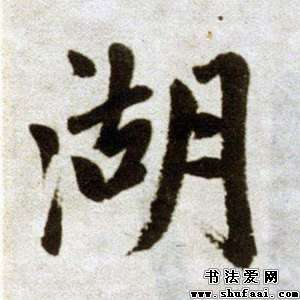 湖
书法爱网
www.shufaai.com